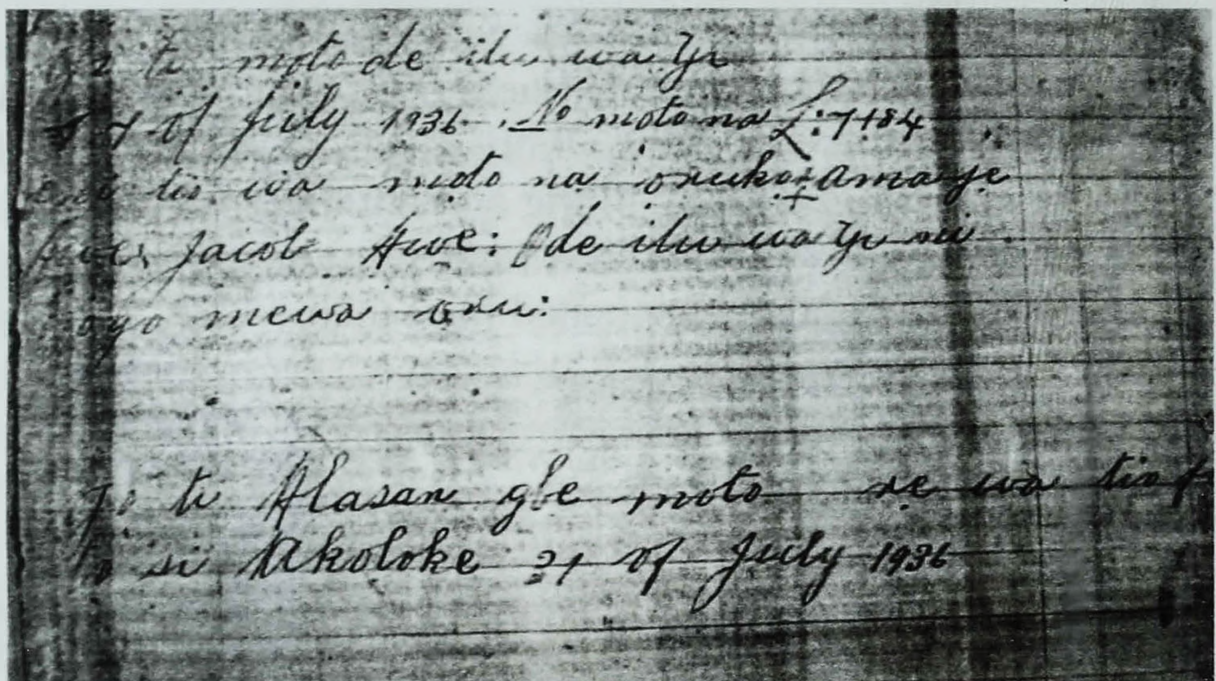 ti moto de ilu wa Yi
of July 1936. No moto na L: 7184
tio wa moto na oruko: ama je
Jacob Awe: Ode ilu wa Yi ni
ago mewa oru:
Jo ti Alasan gbe moto re wa tio f
si Akoloke 21 of July 1936